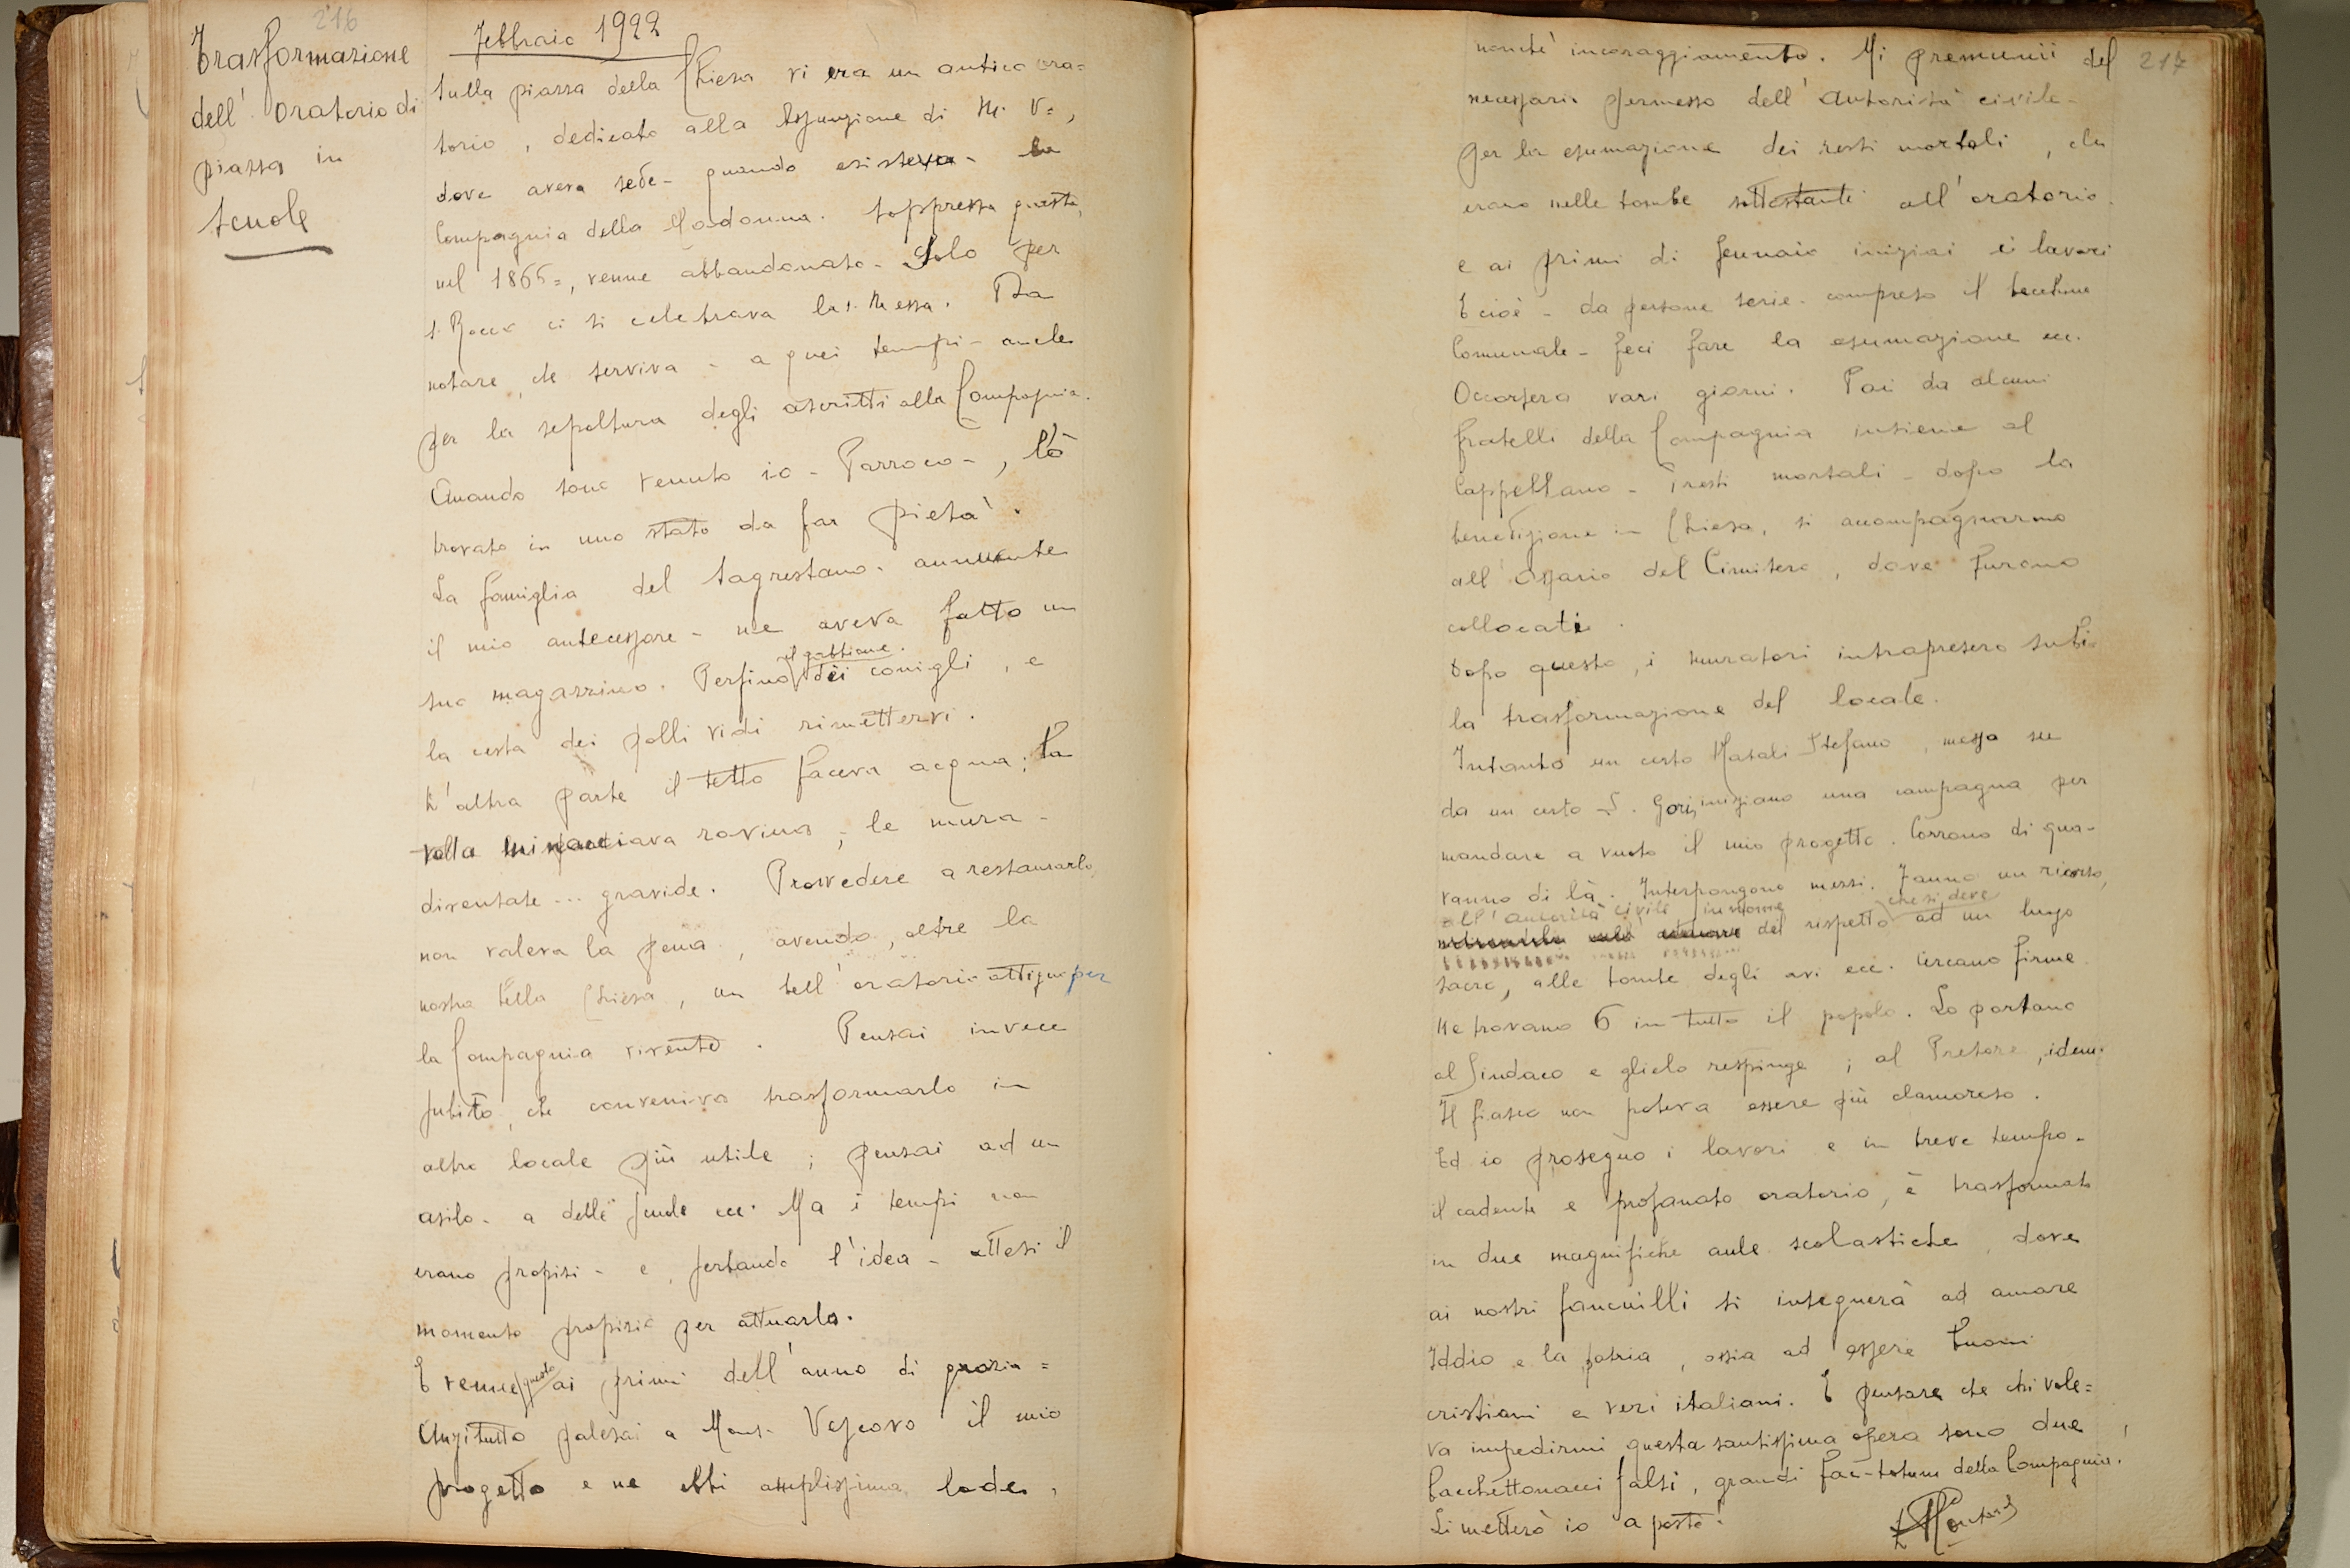 216
Trasformazione
dell'Oratorio di
piazza in
scuole
Febbraio 1922
Sulla piazza della Chiesa vi era un antico ora=
torio, dedicato alla Assunzione di M. V=,
dove aveva sede - quando esisteva - la
Compagnia della Madonna. Soppressa questa,
nel 1865=, venne abbandonato. Solo per
S. Rocco ci si celebrava la S. Messa. Da
notare, che serviva - a quei tempi - anche
per la sepoltura degli ascritti alla Compagnia.
Quando sono venuto io - Parroco -, l'ò
trovato in uno stato da far pietà.
La famiglia del Sagrestano - annuente
il mio antecessore - ne aveva fatto un
il gabbione
suo magazzino. Perfino dei conigli, e
la cesta dei polli vidi rimettervi.
D'altra parte il tetto faceva acqua; la
volta minacciava rovina, le mura -
diventate ... gravide. Provvedere a restaurarlo,
non valeva la pena, avendo, oltre la
nostra bella Chiesa, un bell'oratorio attiguo per
la Compagnia vivente. Pensai invece
subito, che conveniva trasformarlo in
altro locale più utile; pensai ad un
asilo - a delle scuole ecc. Ma i tempi non
erano propizi - e, serbando l'idea - attesi il
momento propizio per attuarla.
E venne questo ai primi dell'anno di grazia =
Anzitutto palesai a Mons. Vescovo il mio
progetto e ne ebbi amplissima lode,
217
nonchè incoraggiamento. Mi premunii del
necessario permesso dell'Autorità civile -
per la esumazione dei resti mortali, che
erano nelle tombe sottostanti all'oratorio.
e ai primi di Gennaio iniziai i lavori
E cioè - da persone serie - compreso il becchino
Comunale - feci fare la esumazione ecc.
Occorsero vari giorni. Poi da alcuni
fratelli della Compagnia insieme al
Cappellano - i resti mortali - dopo la
benedizione in Chiesa, si accompagnarono
all'Ossario del Cimitero, dove furono
collocati.
Dopo questo, i muratori intrapresero subito
la trasformazione del locale.
Intanto un certo Natali Stefano, messo su
da un certo S. Gori, iniziano una campagna per
mandare a vuoto il mio progetto. Corrono di qua -
vanno di là. Interpongono messi. Fanno un ricorso,
all'autorità civile, in nome che si deve
del rispetto ad un luogo
sacro, alle tombe degli avi ecc. Cercano firme
Ne trovano 6 in tutto il popolo. Lo portano
al Sindaco e glielo respinge; al Pretore, idem.
Il fiasco non poteva essere più clamoroso.
Ed io proseguo i lavori e in breve tempo -
il cadente e profanato oratorio, è trasformato
in due magnifiche aule scolastiche, dove
ai nostri fanciulli si insegnerà ad amare
Iddio e la patria, ossia ad essere buoni
cristiani e veri italiani. E pensare che chi vole=
va impedirmi questa santissima opera sono due
bacchettonacci falsi, grandi fac-totum della Compagnia.
Li metterò io a posto!